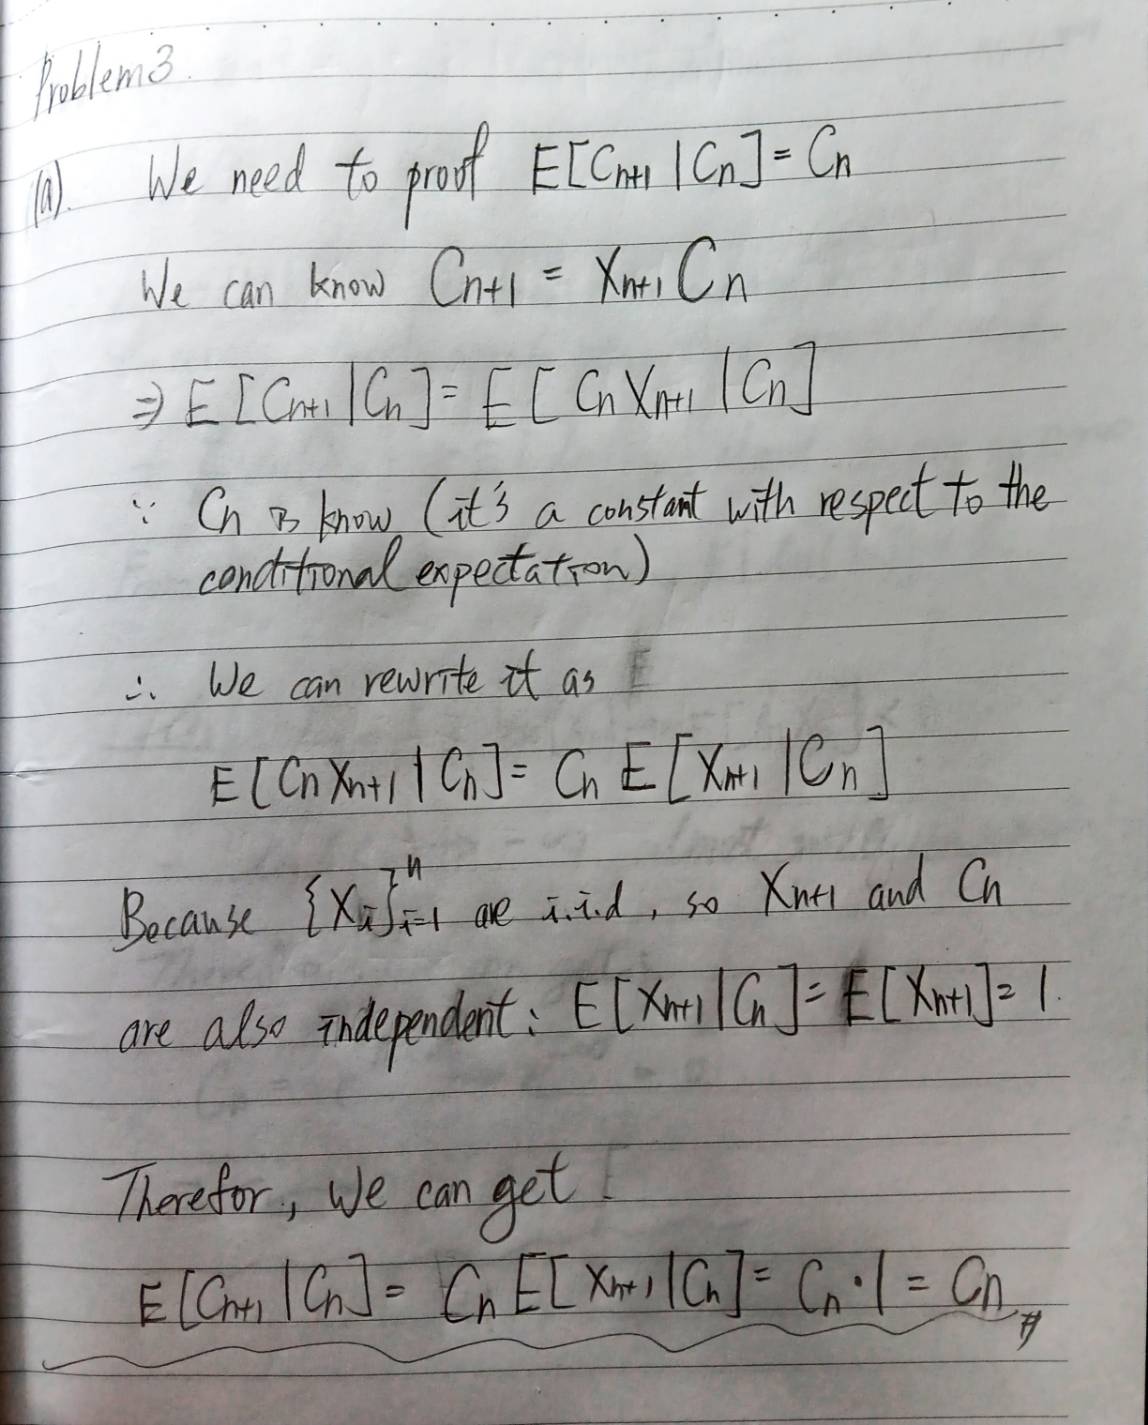 Problem 3.
(a). We need to proof E[Cn+1 | Cn] = Cn
We can know Cn+1 = Xn+1 Cn
⇒ E[Cn+1 | Cn] = E[Cn Xn+1 | Cn]
∵ Cn is know (it's a constant with respect to the
conditional expectation)
∴ We can rewrite it as
E[Cn Xn+1 | Cn] = Cn E[Xn+1 | Cn]
Because {Xi}ⁿi=1 are i.i.d, so Xn+1 and Cn
are also independent: E[Xn+1 | Cn] = E[Xn+1] = 1.
Therefor, we can get
E[Cn+1 | Cn] = Cn E[Xn+1 | Cn] = Cn · 1 = Cn #